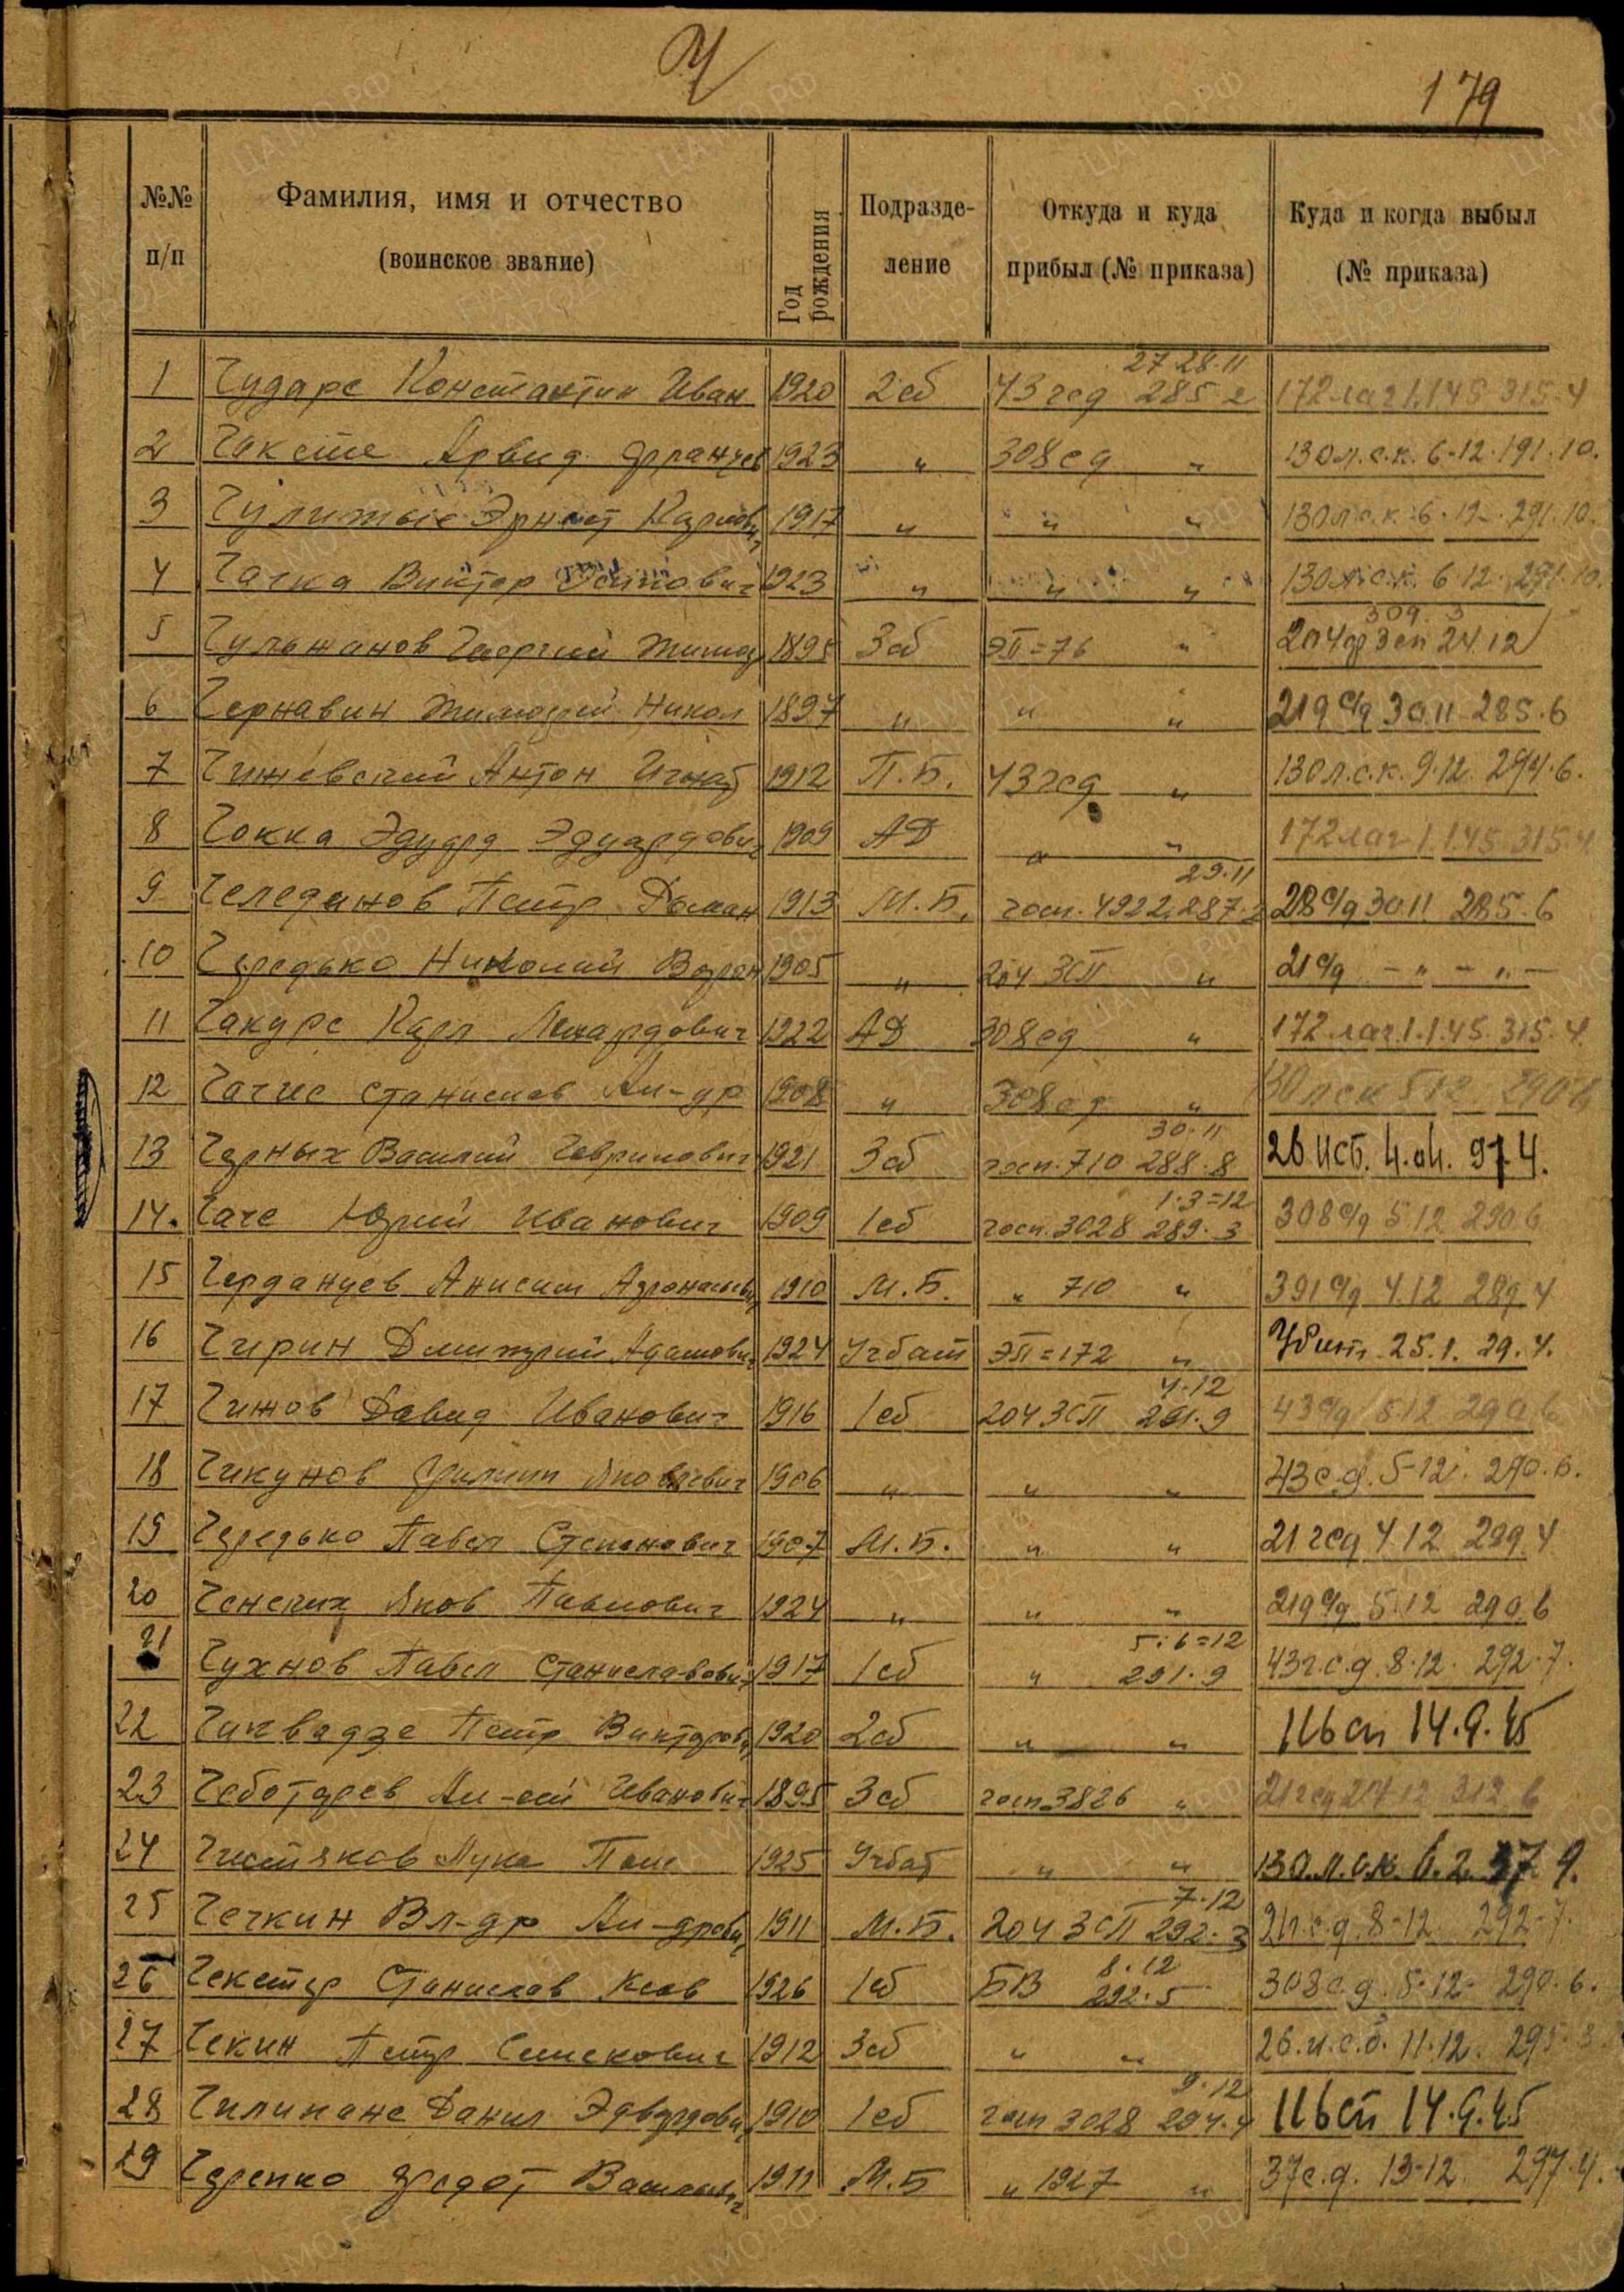 Ч
179
№№ п/п
Фамилия, имя и отчество (воинское звание)
Год рождения
Подразде-ление
Откуда и куда прибыл (№ приказа)
Куда и когда выбыл (№ приказа)
27-28·11
1 Чударс Константин Иван 1920 2сб 43гсд 285-2 172лат 1.1.45 315-4
2 Чаксте Арвид Францев 1923 " 308сд " 130л.с.к. 6-12-191.10.
3 Эрнест Карлов 1917 " " " 130л.с.к. 6-12-291.10.
4 Чачка Виктор Осипович 1923 " " " 130л.с.к. 6-12-291.10.
309.3
5 Чульжанов Георгий Тимоф 1895 3сб ЭП=76 " 24 12
6 Чернавин Тимофей Никол 1897 " " " 219сд 30 11 285.6
7 Чижевский Антон Игнат 1912 П.Б. 43гсд " 130л.с.к. 9-12. 294.6.
8 Чокка Эдуард Эдуардович 1909 АД " " 172лат 1.1.45 315.4
29·11
9 Челеданов Петр Роман 1913 М.Б. госп. 4922 287. 28сд 30 11 285.6
10 Чередько Николай 1905 " 204 ЗСП " 21сд -"- "-
11 Чакурс Карл Ленардович 1922 АД 308сд " 172 лат. 1.1.45. 315.4.
12 Чачис Станислав Ал-др 1908 " 308сд " 130лск 5 12 290 6
30·11
13 Черных Василий Гаврилович 1921 3сб госп. 710 288.8 26 ИСБ. 97.4.
1·3=12
14. Чаче Юрий Иванович 1909 1сб госп. 3028 289.3 308сд 5 12 290 6
15 Черданцев Анисим Афонасьевич 1910 М.Б. " 710 " 391сд 4.12 289 4
16 Чирин Дмитрий Адамович 1924 Учбат ЭП=172 " Убит. 25.1. 29.4.
4·12
17 Чижов Давид Иванович 1916 1сб 204 ЗСП 291.9 43сд 5 12 290 6
18 Чикунов Филипп Яковлевич 1906 " " " 43с.д. 5-12. 290.6.
19 Чередько Павел Степанович 1907 М.Б. " " 21гсд 4 12 289.4
20 Ченских Яков Павлович 1924 " " " 219сд 5 12 290 6
5:6=12
21 Чухнов Павел Станиславович 1917 1сб " 291.9 43г.с.д. 8-12. 292-7.
22 Чиквадзе Петр Викторович 1920 2сб " " 116сп 14.9.45
23 Чеботарев Ал-сей Иванович 1895 3сб госп 3826 " 21гсд 312 6
24 Чистяков Лука 1925 Учбат " " 130.л.с.к. 6.2. 37 9.
7·12
25 Чечкин Вл-др Ал-дрович 1911 М.Б. 204 ЗСП 292.3 8-12 292-7.
8·12
26 Чекстер Станислав 1926 1сб БВ 292.5 308с.д. 5-12- 290.6.
27 Чекин Петр Семенович 1912 3сб " " 26.и.с.б. 11-12.
9·12
28 Чилипанс Данил Эдвардович 1910 1сб госп 3028 294.4 116сп 14.9.45
29 Черепко Федот Васильевич 1911 М.Б " 1927 " 37с.д. 13-12. 297.4.